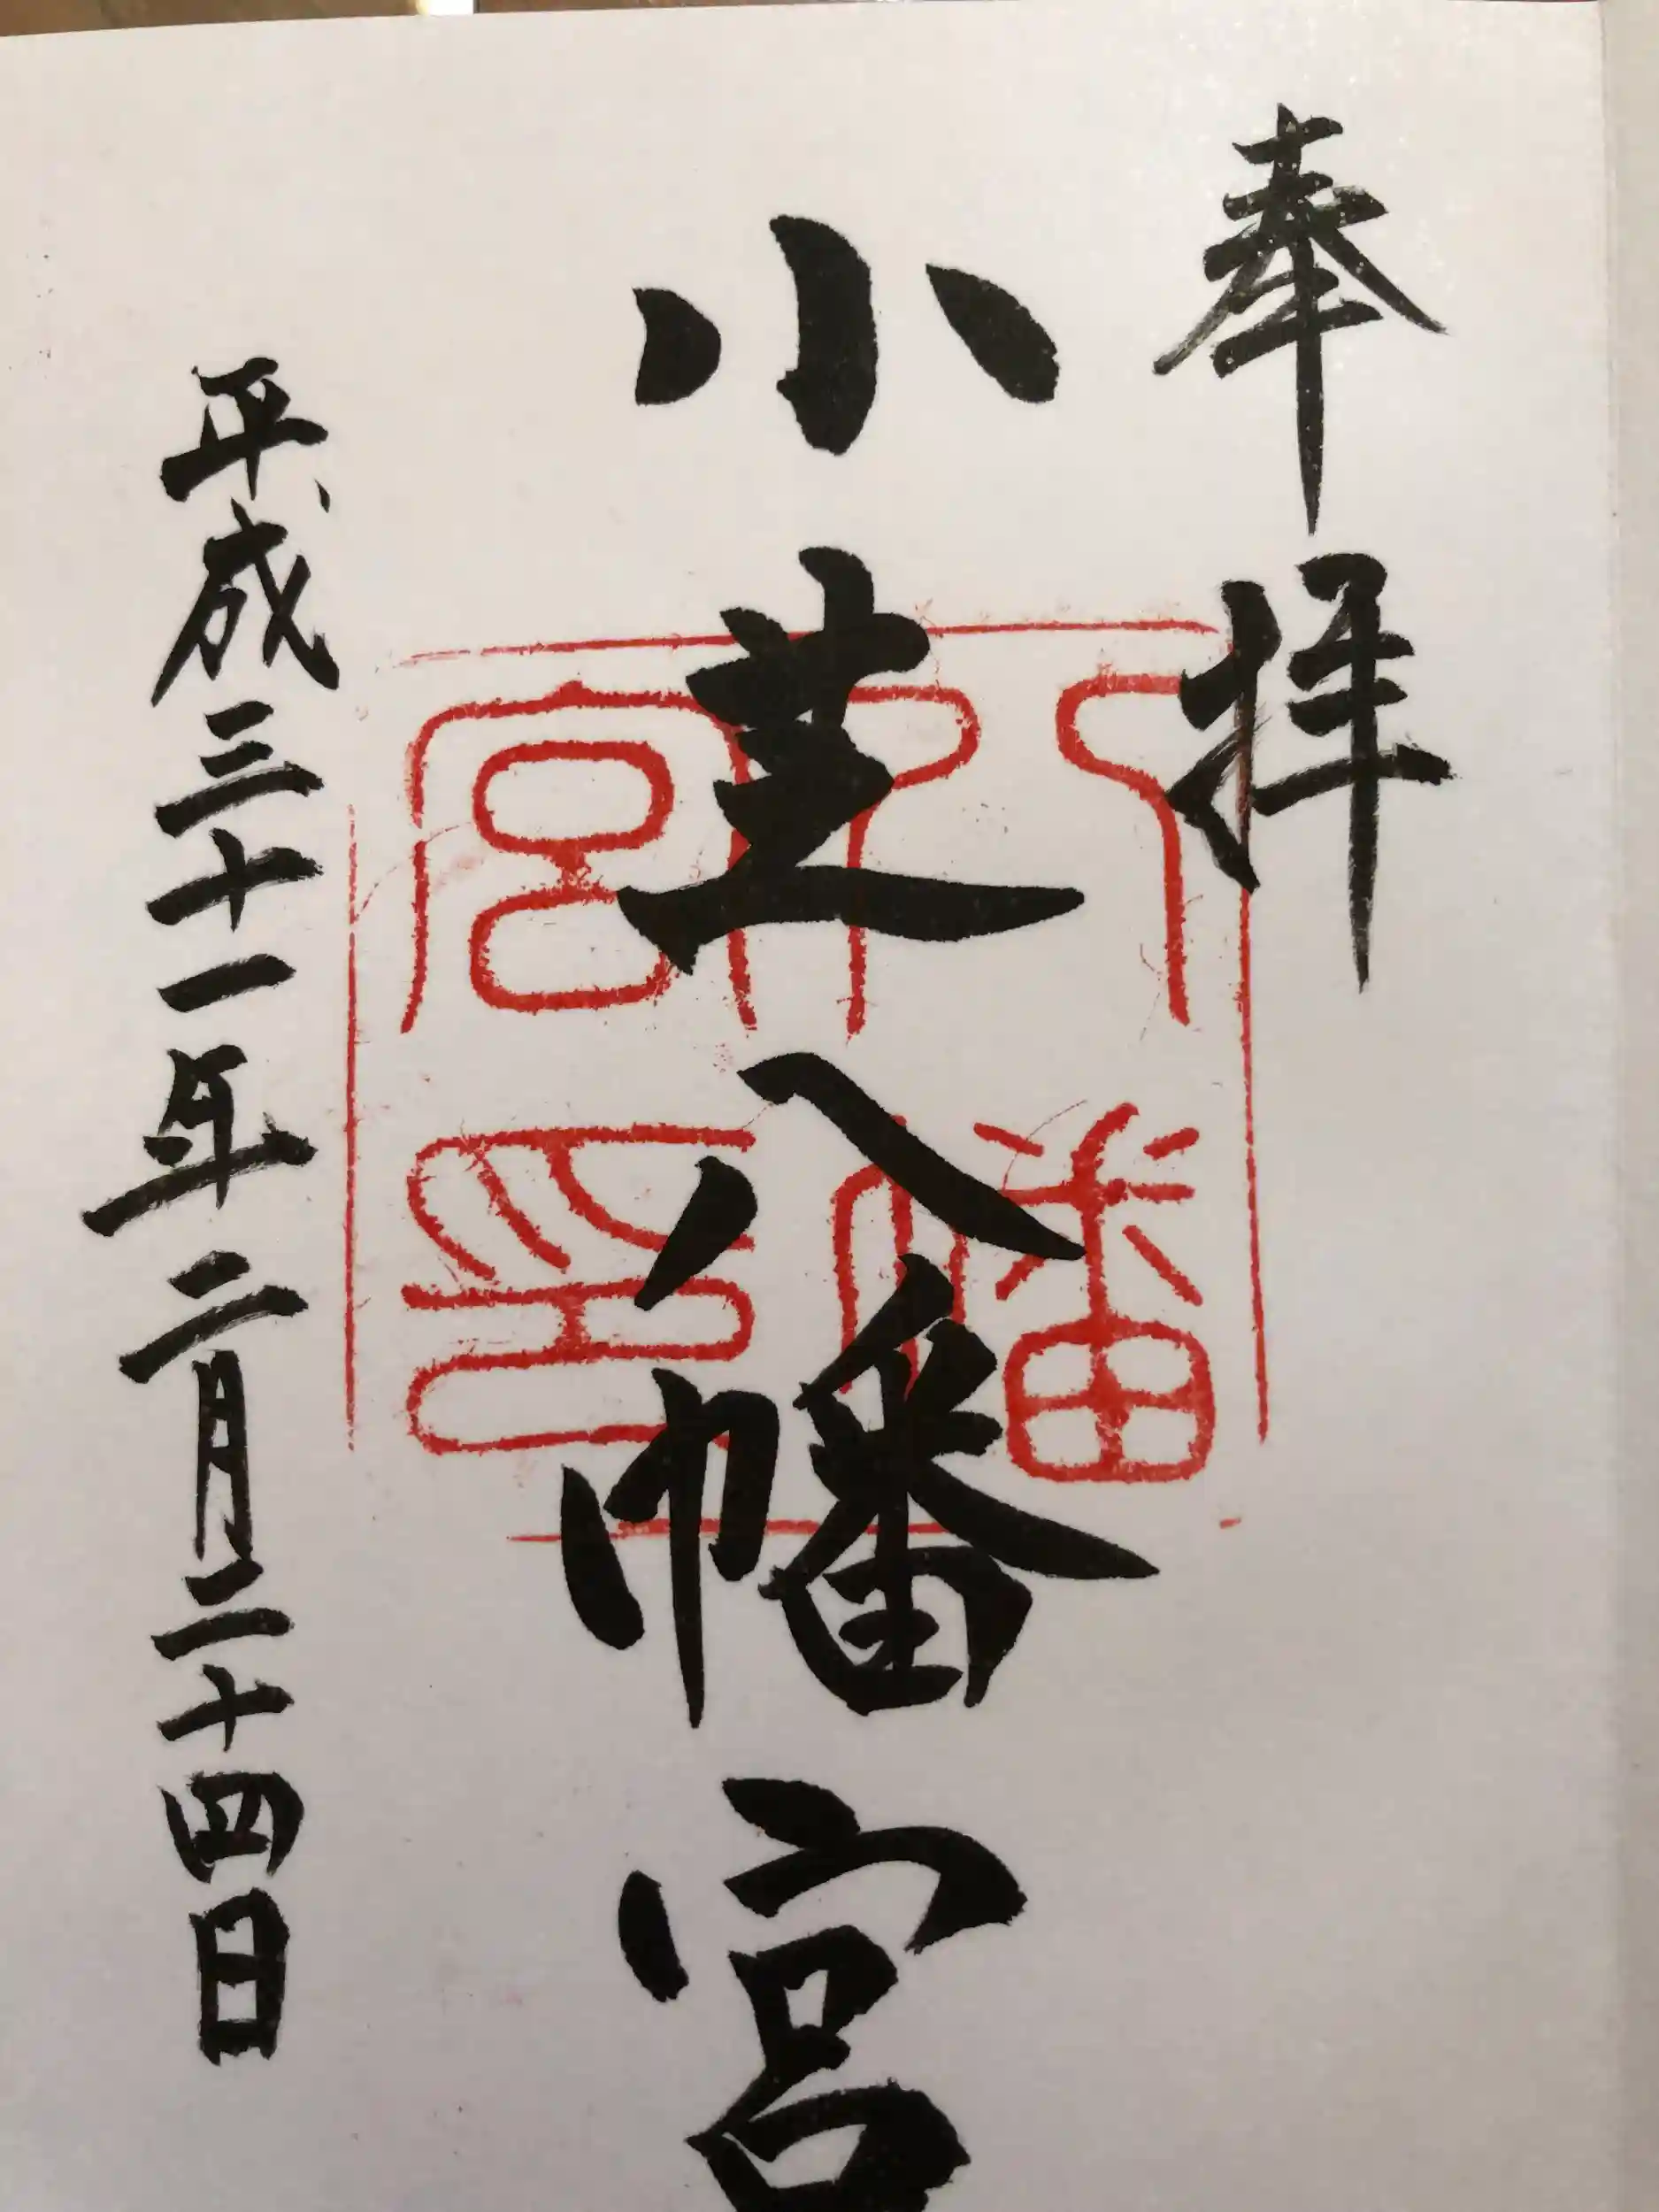 奉拝
小芝八幡宮
平成三十一年二月二十四日
八幡宮印